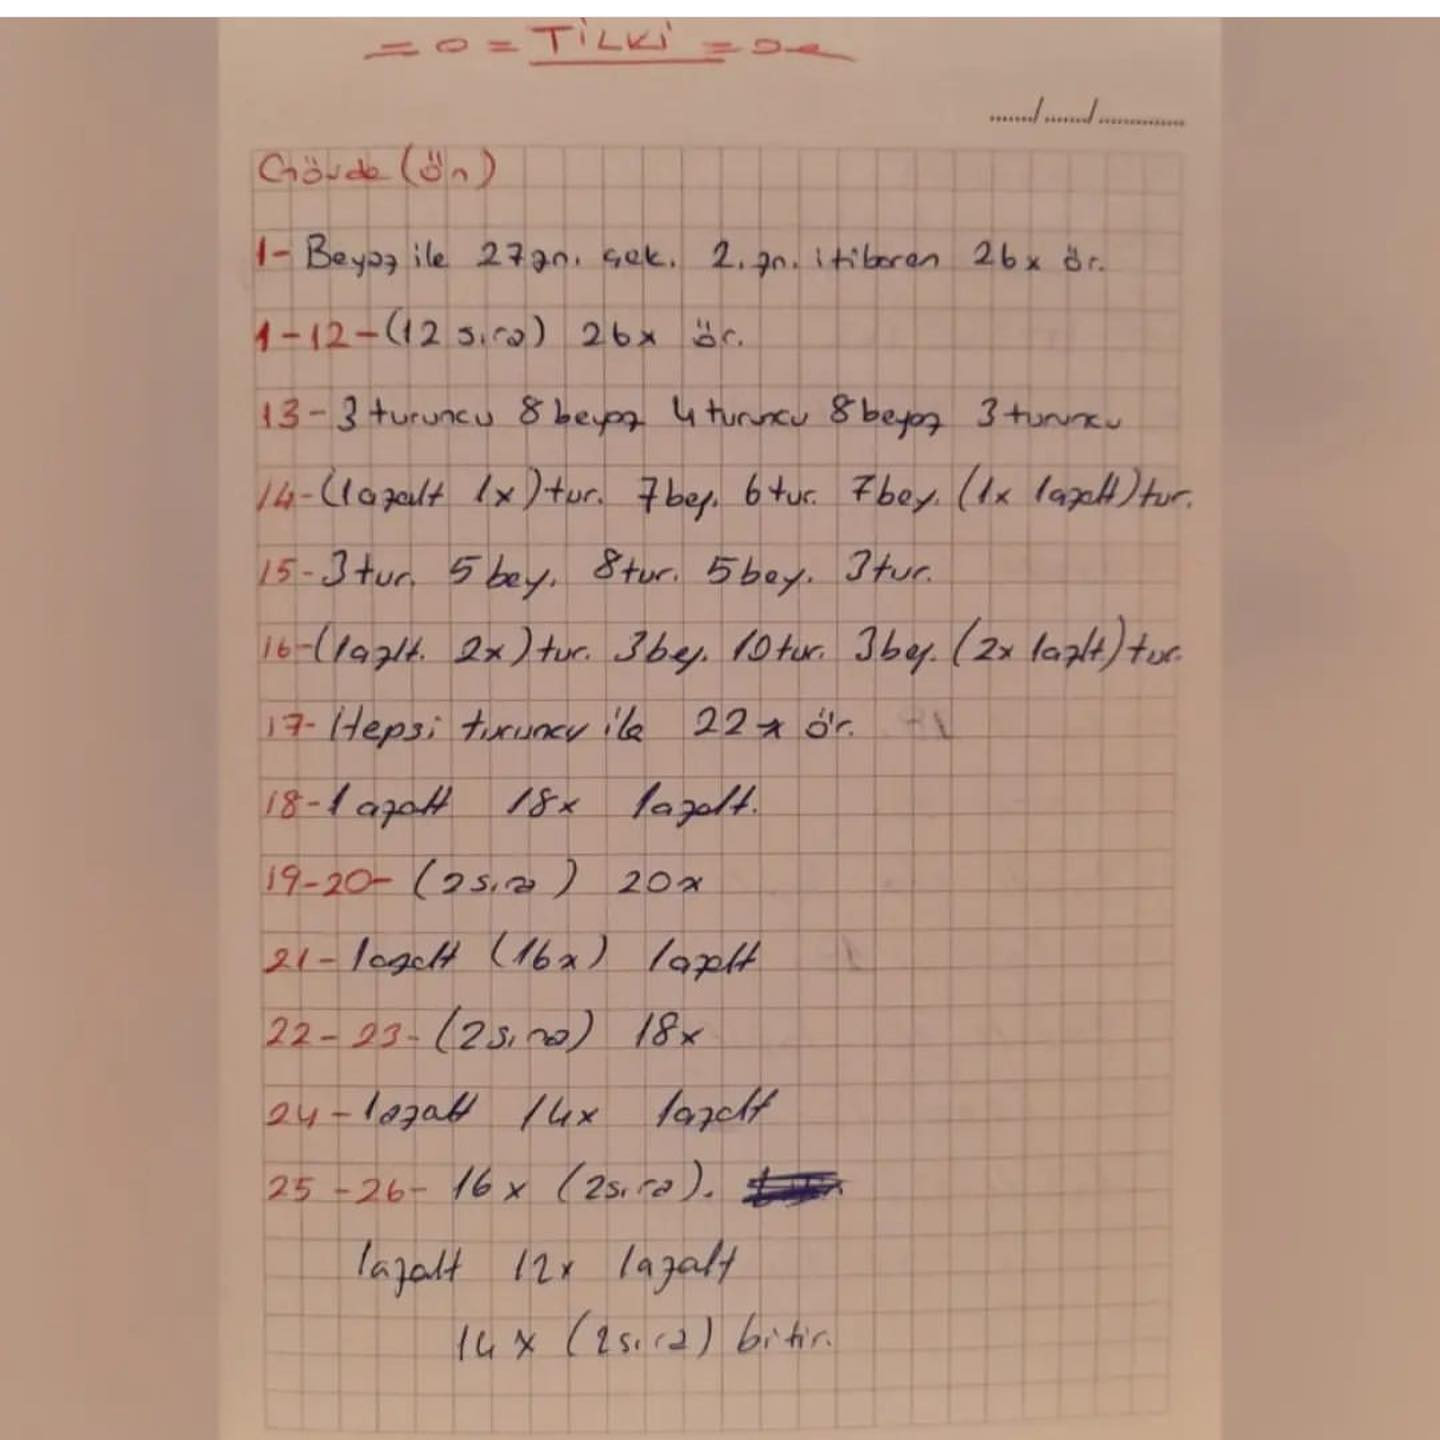 = o = TİLKİ = o =
....../....../............
Gövde (ön)
1- Beyaz ile 27 zn. çek. 2. zn. itibaren 26x ör.
1-12-(12 sıra) 26x ör.
13- 3 turuncu 8 beyaz 4 turuncu 8 beyaz 3 turuncu
14-(1 azalt 1x) tur. 7 bey. 6 tur. 7 bey. (1x 1 azalt) tur.
15- 3 tur. 5 bey. 8 tur. 5 bey. 3 tur.
16-(1 azlt. 2x) tur. 3 bey. 10 tur. 3 bey. (2x 1 azlt) tur.
17- Hepsi turuncu ile 22x ör.
18-1 azalt 18x 1 azalt.
19-20- (2 sıra) 20x
21- 1 azalt (16x) 1 azalt
22-23- (2 sıra) 18x
24- 1 azalt 14x 1 azalt
25-26- 16x (2 sıra).
1 azalt 12x 1 azalt
14x (2 sıra) bitir.